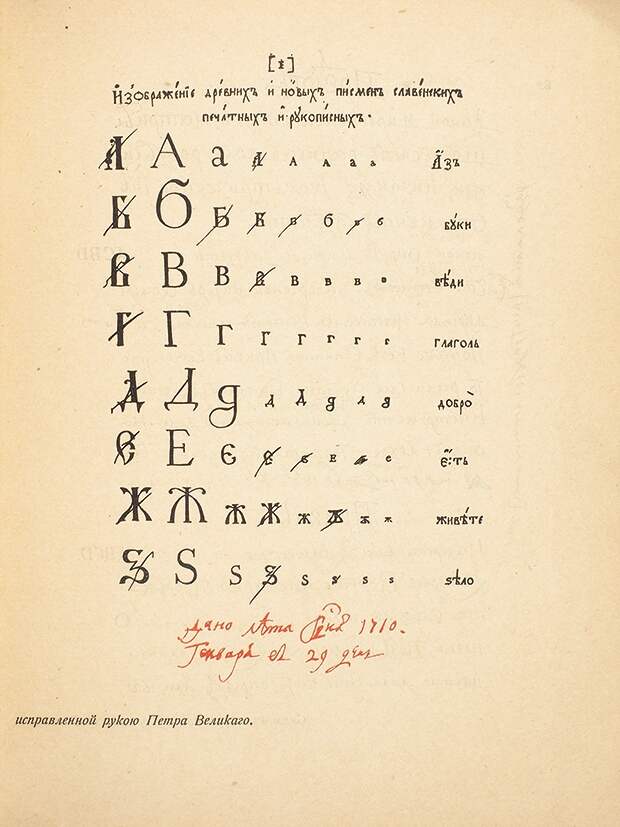 [1]
Изѡбраже́нїе дре́внихъ и҆ но́выхъ пи́сменъ славе́нскихъ
печа́тныхъ и҆ рукопи́сныхъ.
А А а а а а а а А҆́зъ
Б Б Б Б б б б б бу́ки
В В В в в в в в вѣ́ди
Г Г Г г г г г г глаго́ль
Д Д д д Д д д д добро̀
Є Е є є є Е е е є҆́сть
Ж Ж ж Ж ж ж ж ж живѣ́те
Ѕ Ѕ ѕ Ѕ ѕ ѕ ѕ ѕ ѕ ѕѣло̀
дано лѣта 1710.
Генваря 29 дня
исправленной рукою Петра Великаго.